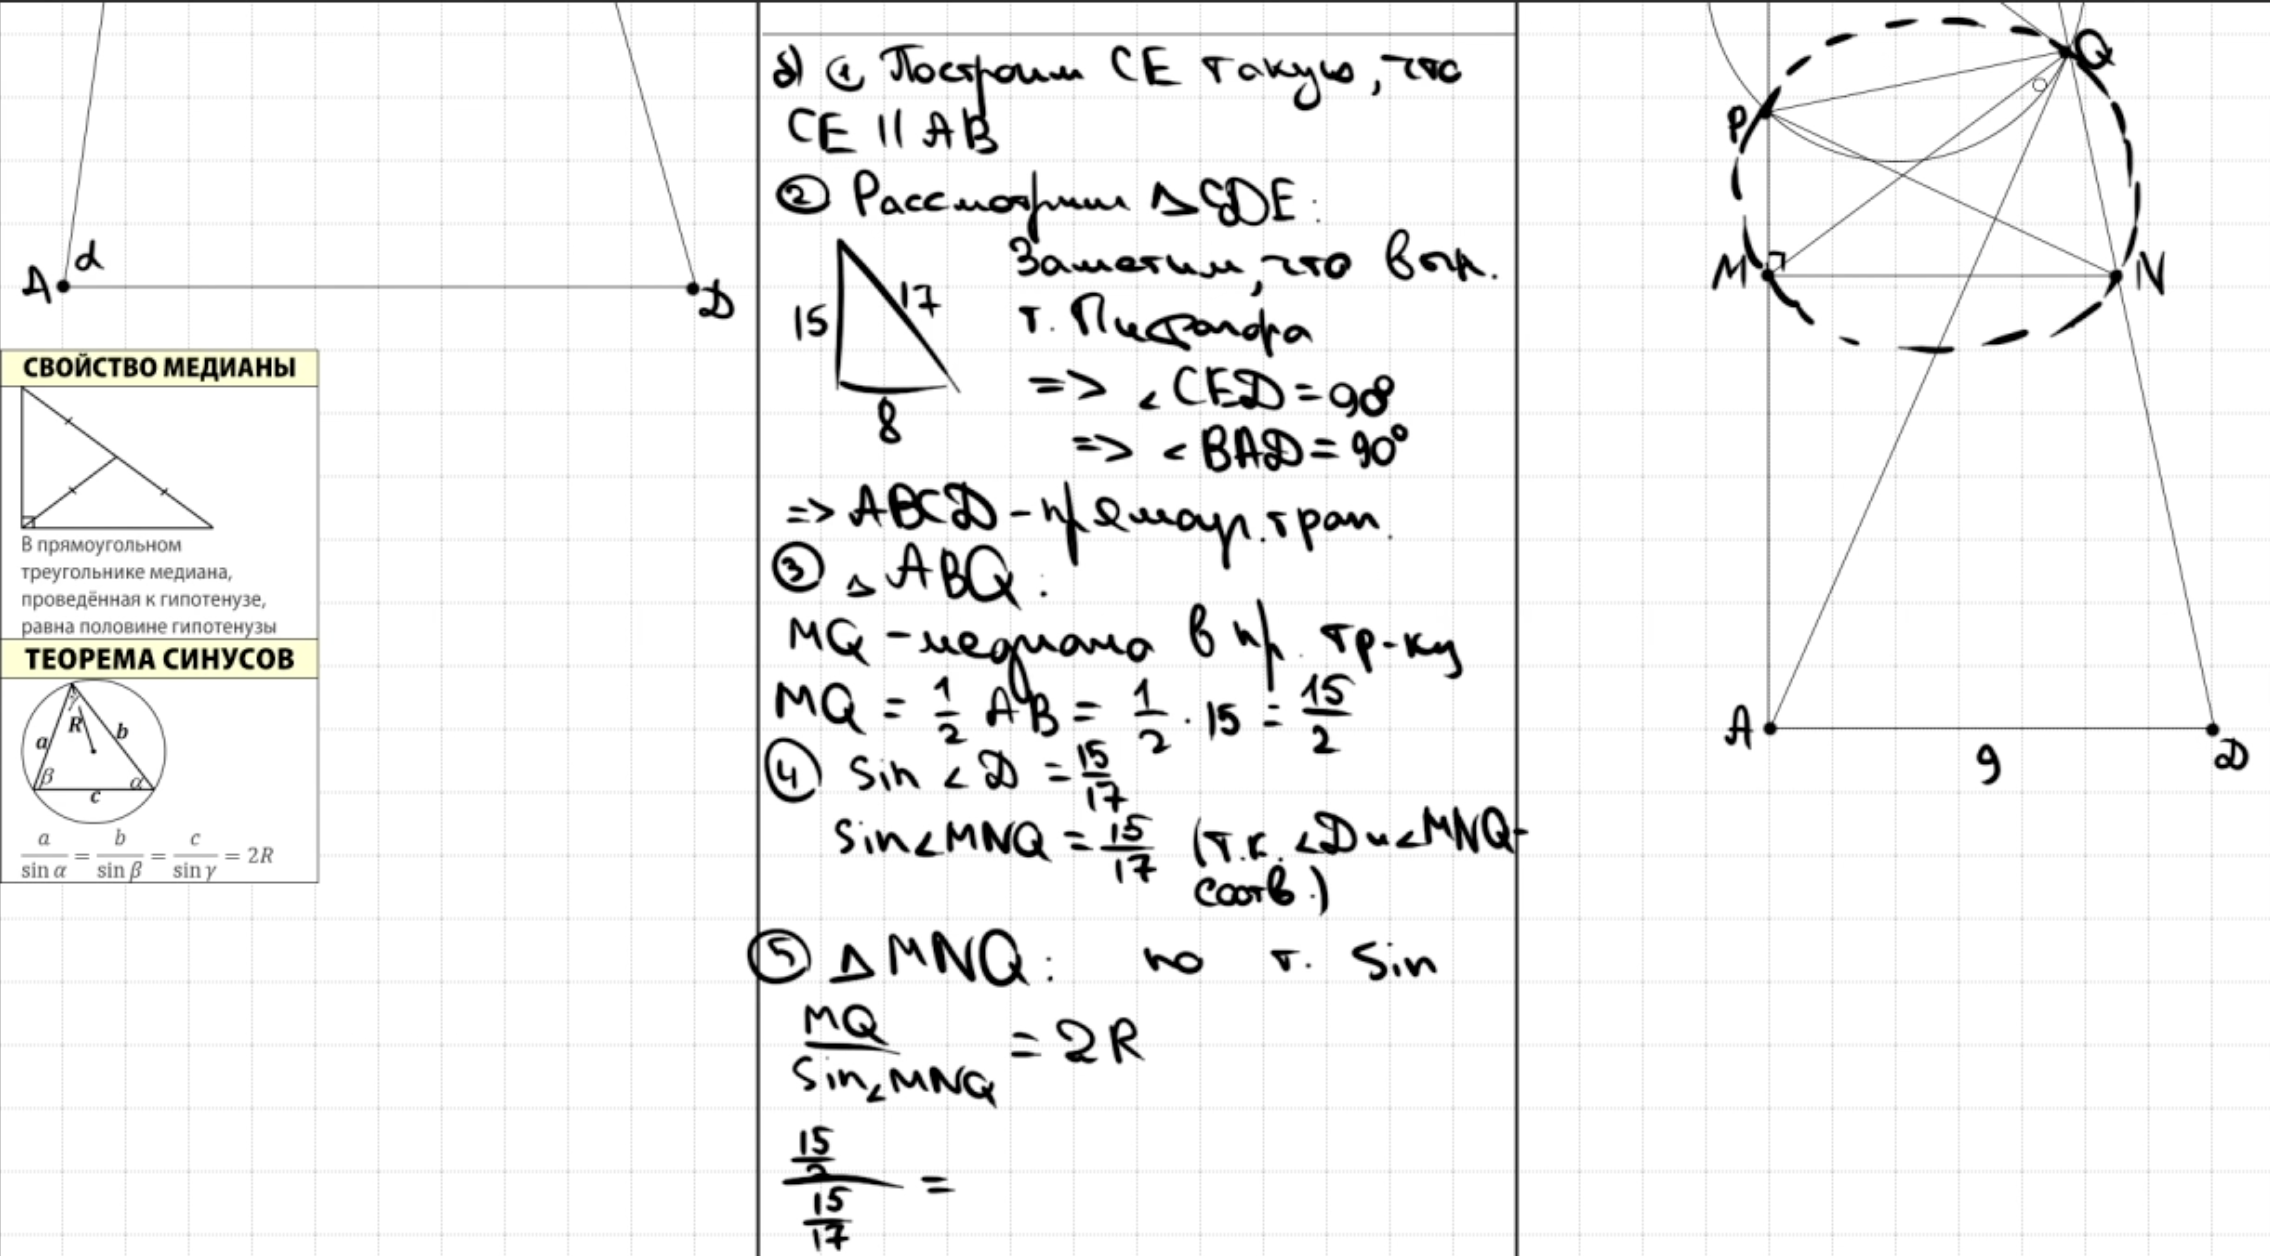 A
α
D
СВОЙСТВО МЕДИАНЫ
В прямоугольном
треугольнике медиана,
проведённая к гипотенузе,
равна половине гипотенузы
ТЕОРЕМА СИНУСОВ
R
a
b
β
α
c
γ
a/sin α = b/sin β = c/sin γ = 2R
б) ① Построим CE такую, что
CE || AB
② Рассмотрим △CDE:
15
17
8
Заметим, что вып.
т. Пифагора
=> ∠CED = 90°
=> ∠BAD = 90°
=> ABCD - прямоуг. трап.
③ △ABQ:
MQ - медиана в пр. тр-ку
MQ = 1/2 AB = 1/2 · 15 = 15/2
④ Sin ∠D = 15/17
Sin∠MNQ = 15/17 (т.к. ∠D и ∠MNQ -
соотв.)
⑤ △MNQ: по т. Sin
MQ/Sin∠MNQ = 2R
15/2 / 15/17 =
Q
P
M
N
A
9
D